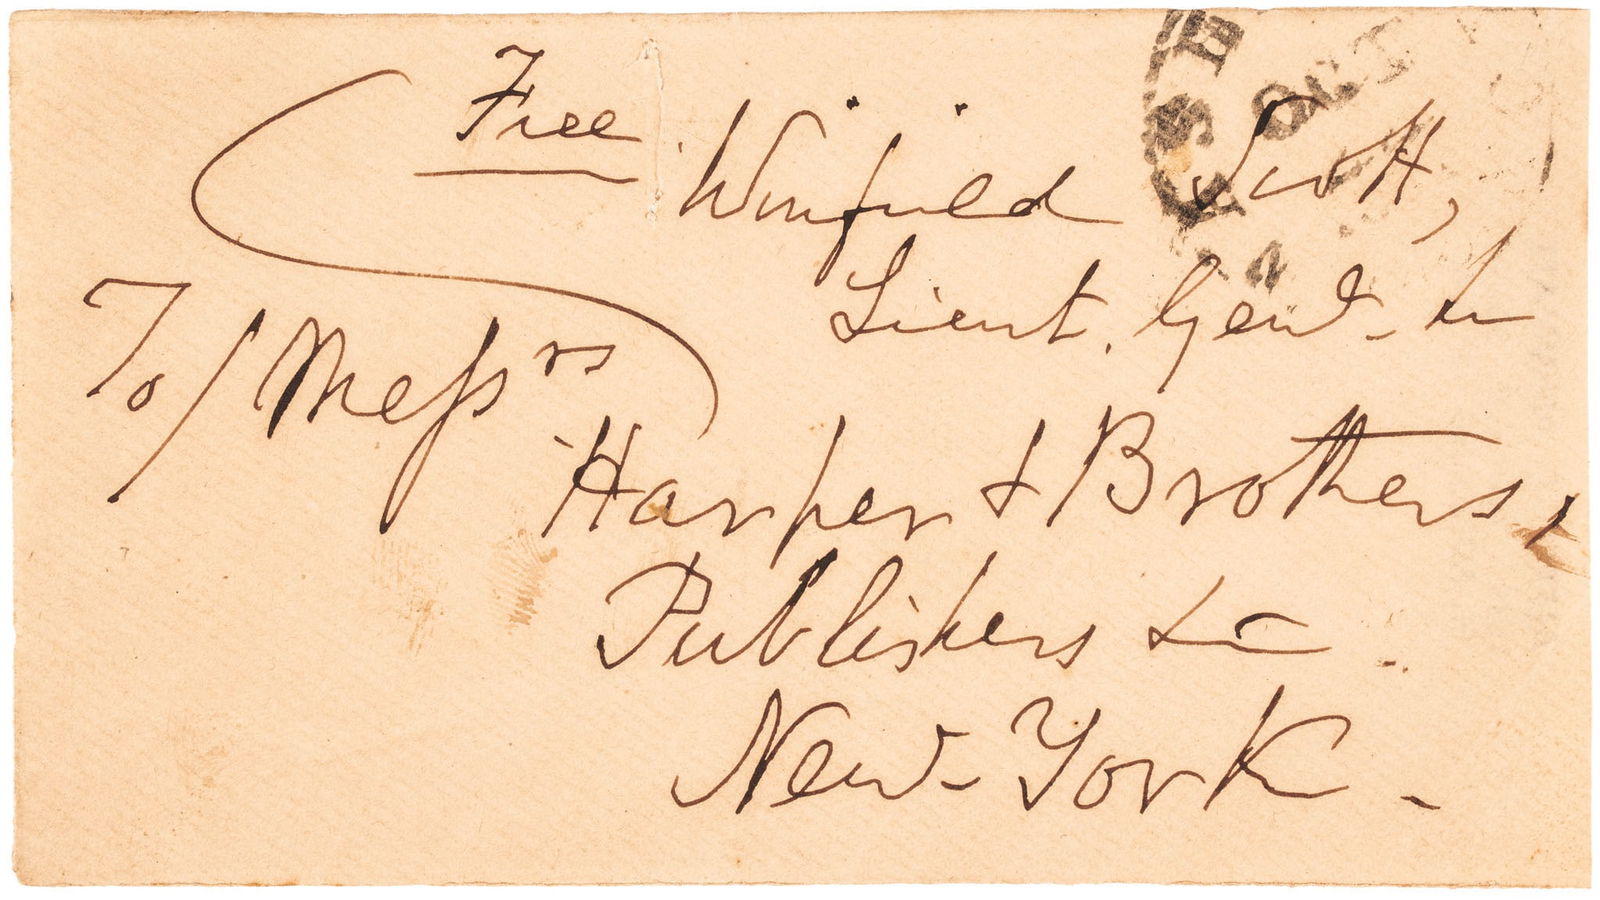 Free
Winfield Scott,
Lieut. Genl.
To/Meſsrs
Harper & Brothers,
Publishers &c.
New-York.
OCT